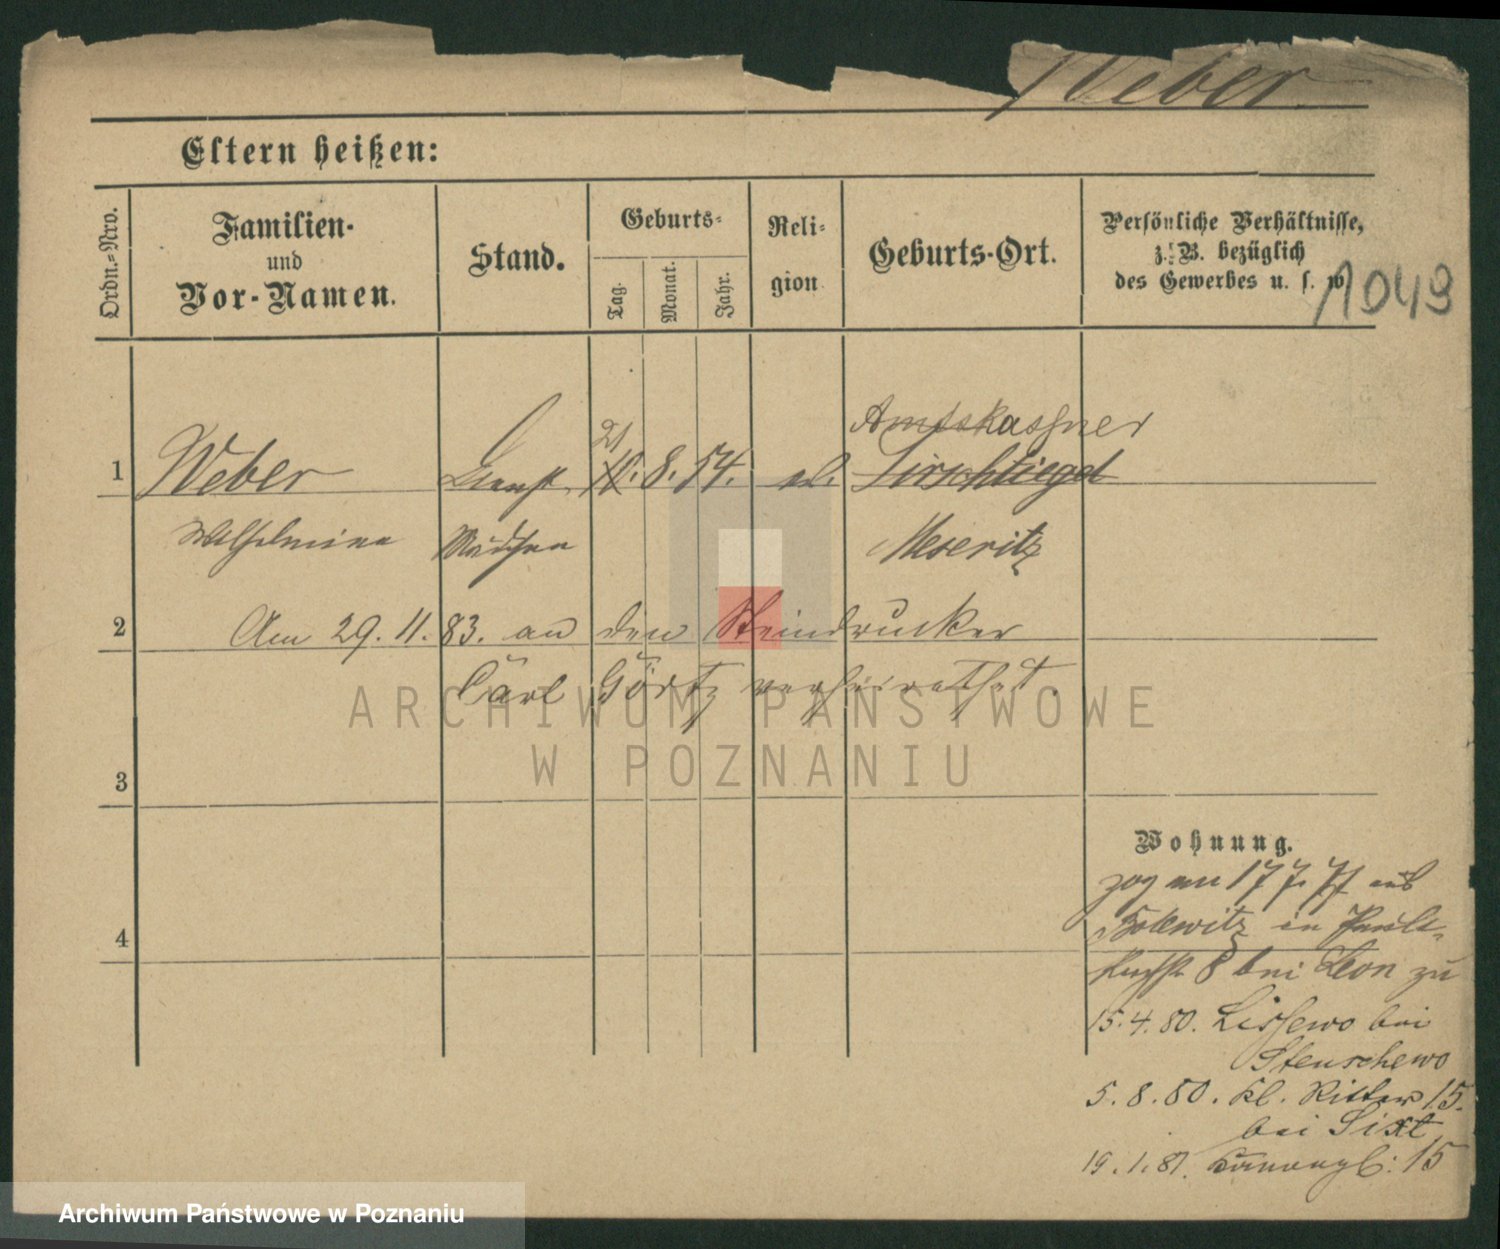 Weber
Eltern heißen:
Ordn.-Nro.
Familien-
und
Vor-Namen.
Stand.
Geburts-
Tag.
Monat.
Jahr.
Reli-
gion
Geburts-Ort.
Persönliche Verhältnisse,
z. B. bezüglich
des Gewerbes u. s. w.
1049
Amtskassner
21
1 Weber Dienst 10. 8. 54. ev. Tirschtiegel
Wilhelmine Mädchen Meseritz
2 Am 29. 11. 83. an den Steindrucker
Carl Görtz verheirathet.
3
4
Wohnung.
zog am 17 7. 77 aus
in Pauli-
kirchst 8 bei Leon zu
15. 4. 80. bei
Stenschewo
5. 8. 80. Kl. Ritter 15.
bei Sixt
19. 1. 81. 15
ARCHIWUM PAŃSTWOWE
W POZNANIU
Archiwum Państwowe w Poznaniu